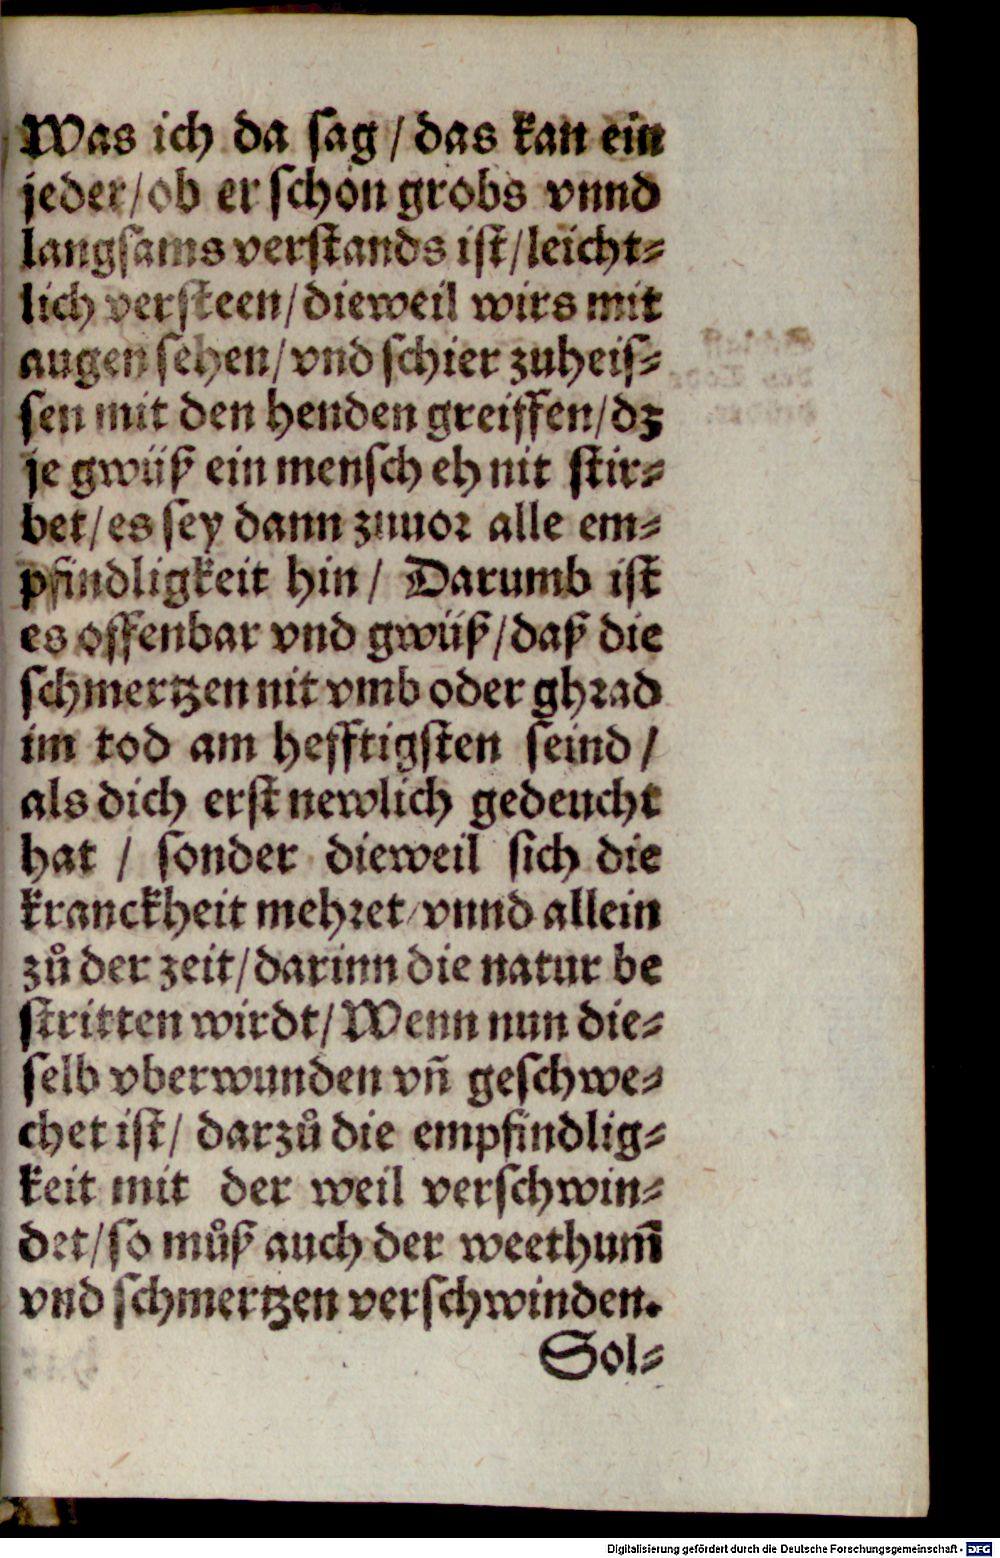 Was ich da ſag / das kan ein
jeder / ob er ſchon grobs vnnd
langſams verſtands iſt / leicht⸗
lich verſteen / dieweil wirs mit
augen ſehen / vnd ſchier zuheiſ⸗
ſen mit den henden greiffen / dz
je gwüß ein menſch eh nit ſtir⸗
bet / es ſey dann zuuor alle em⸗
pfindligkeit hin / Darumb iſt
es offenbar vnd gwüß / daß die
ſchmertzen nit vmb oder ghrad
im tod am hefftigſten ſeind /
als dich erſt newlich gedeucht
hat / ſonder dieweil ſich die
kranckheit mehret / vnnd allein
zů der zeit / darinn die natur be
ſtritten wirdt / Wenn nun die⸗
ſelb vberwunden vñ geſchwe⸗
chet iſt / darzů die empfindlig⸗
keit mit der weil verſchwin⸗
det / ſo můß auch der weethum̃
vnd ſchmertzen verſchwinden.
Sol⸗
Digitalisierung gefördert durch die Deutsche Forschungsgemeinschaft - DFG